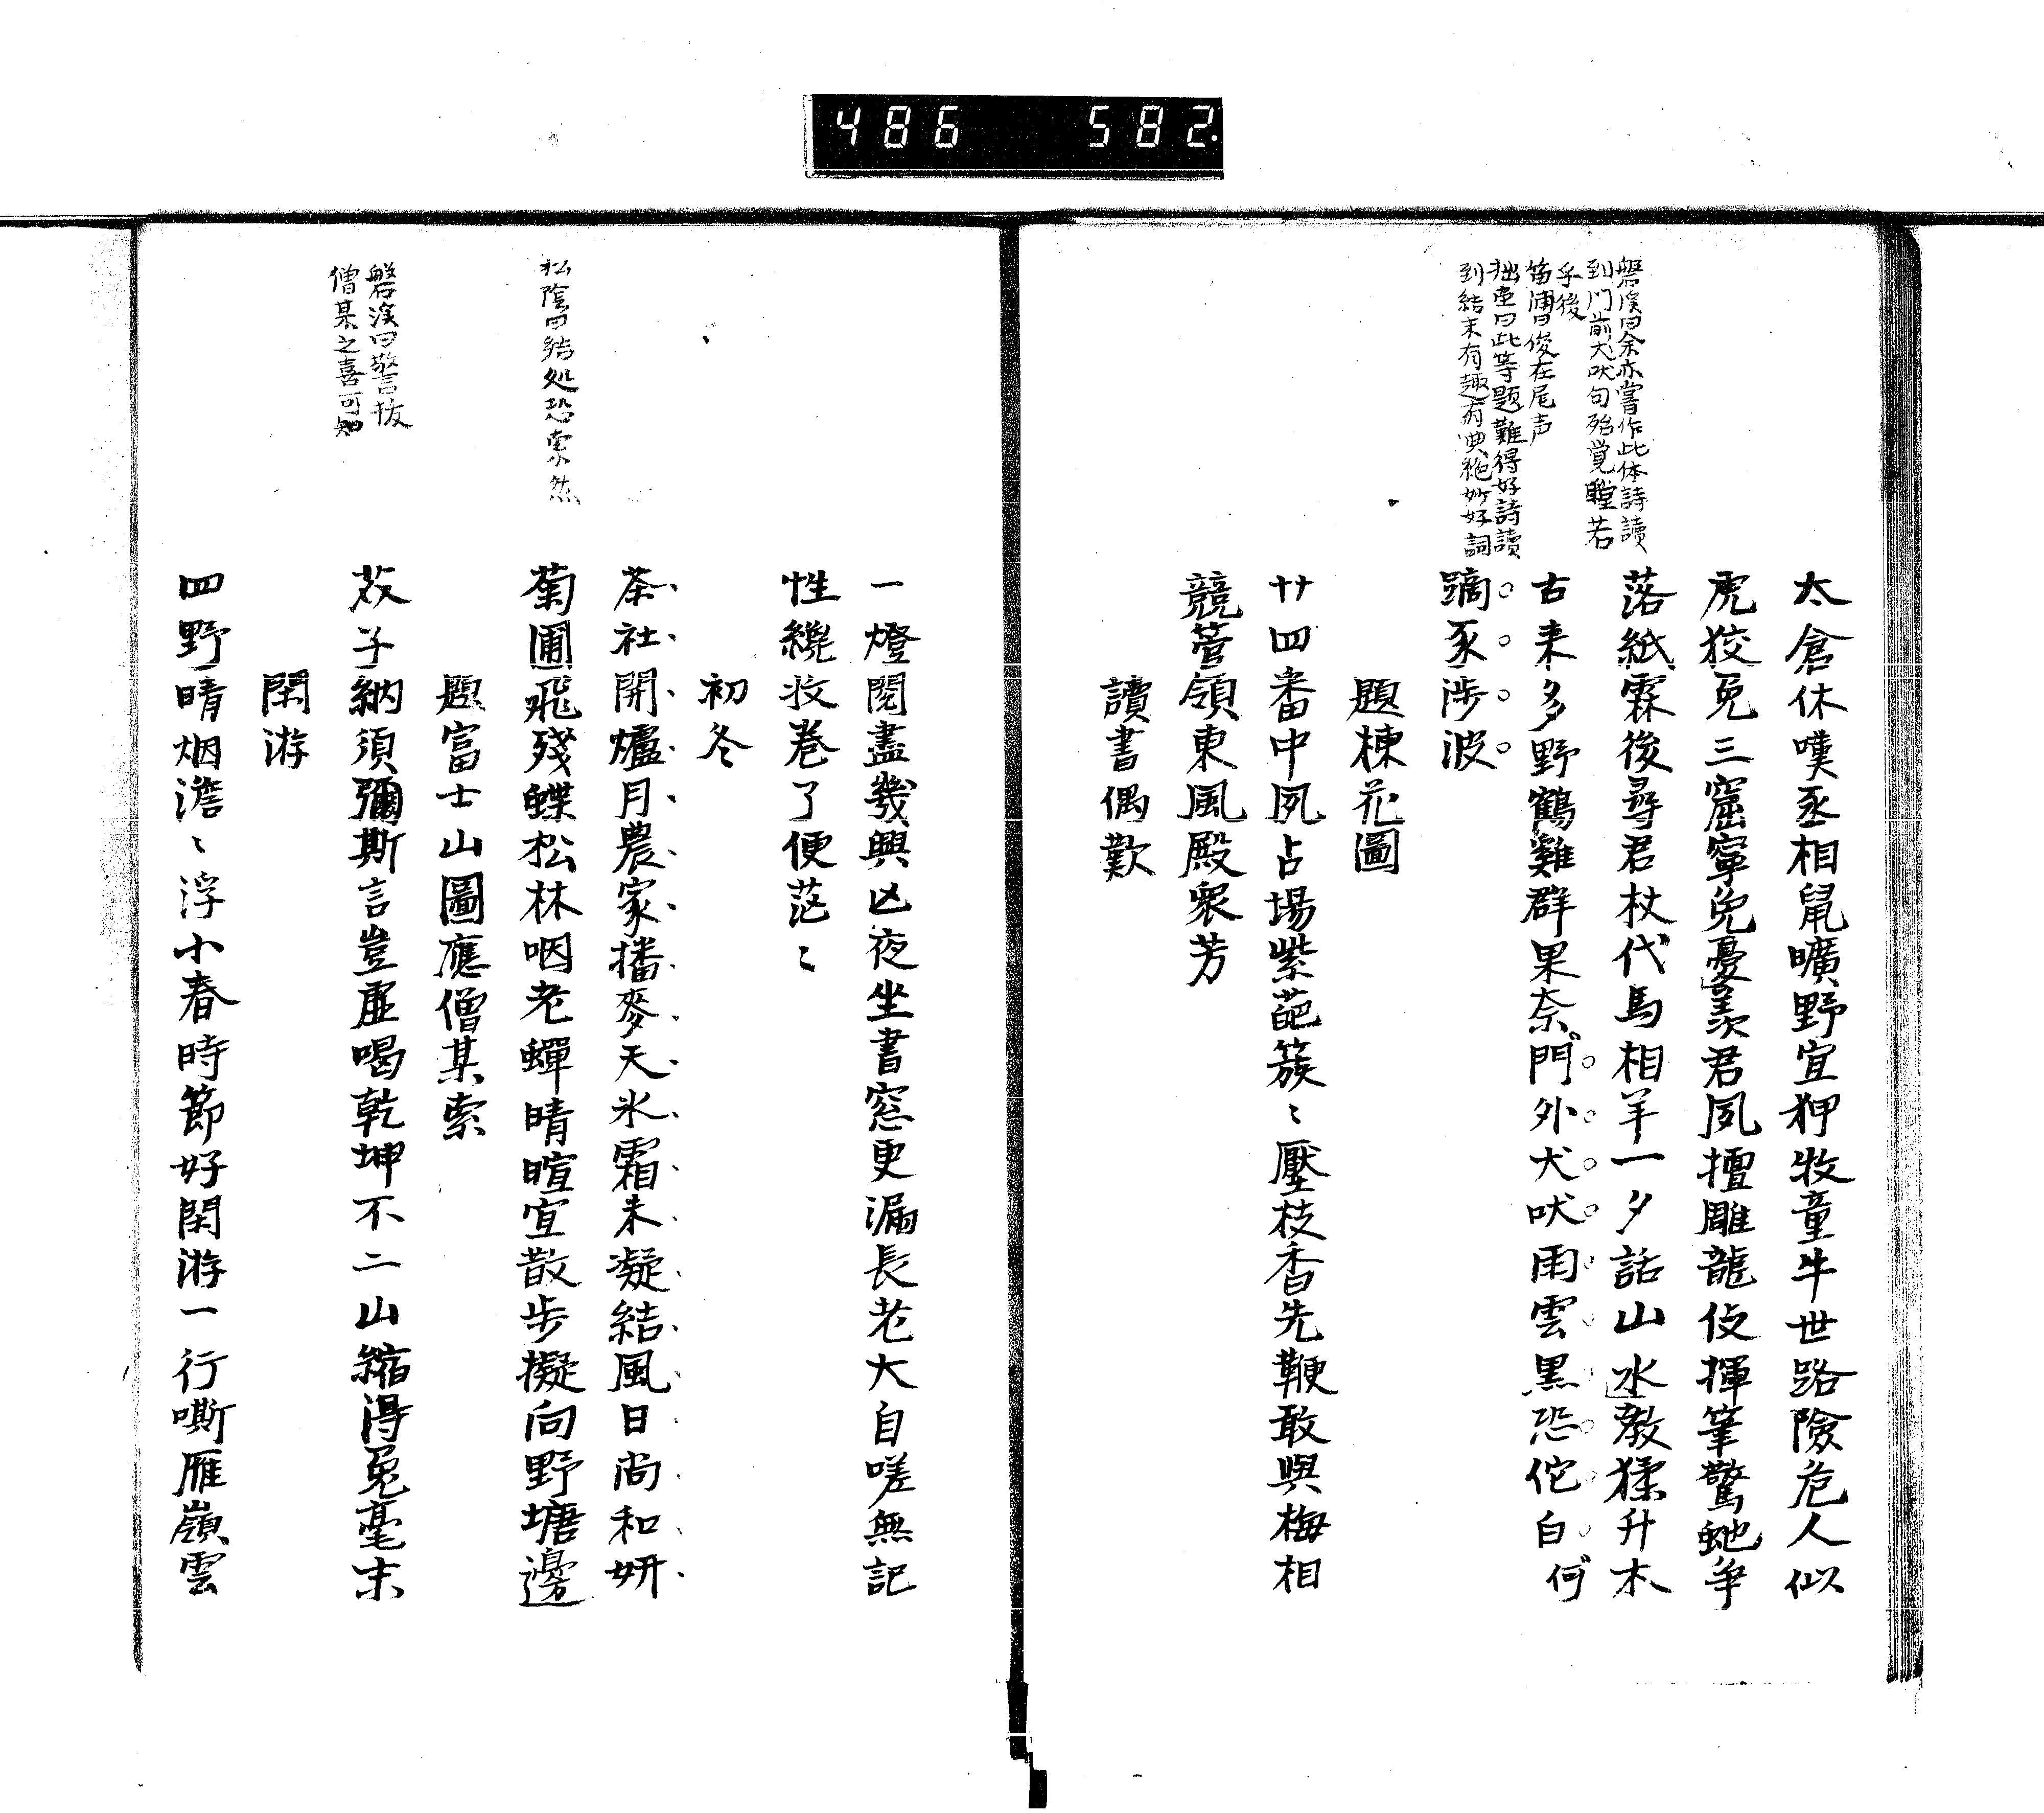 486 582.
磐溪曰余亦嘗作此体詩讀
到門前犬吠句殆覚瞠若
乎後
笛浦曰俊在尾声
拙堂曰此等題難得好詩讀
到結末有趣有典絶妙好詞
太倉休嘆丞相鼠曠野宜狎牧童牛世路險危人似
虎狡兎三窟寧免憂羨君夙擅雕龍伎揮筆驚虵争
落紙霖後尋君杖代馬相羊一夕話山水教猱升木
古来多野鶴雞群果奈門外犬吠雨雲黒恐佗白何
蹢豕涉波
題楝花圖
廿四番中夙占場紫葩簇〻壓枝香先鞭敢與梅相
競管領東風殿衆芳
讀書偶歎
松陰曰結処恐索然
磐溪曰警抜
僧某之喜可知
一燈閲盡幾興亡夜坐書窓更漏長老大自嗟無記
性纔收卷了便茫〻
初冬
茶社開爐月農家播麥天氷霜未凝結風日尚和妍
菊圃飛殘蝶松林咽老蟬晴暄宜散步擬向野塘邊
題富士山圖應僧某索
芥子納須彌斯言豈虚喝乾坤不二山縮得兎毫末
閑游
四野晴烟澹〻浮小春時節好閑游一行嘶雁嶺雲